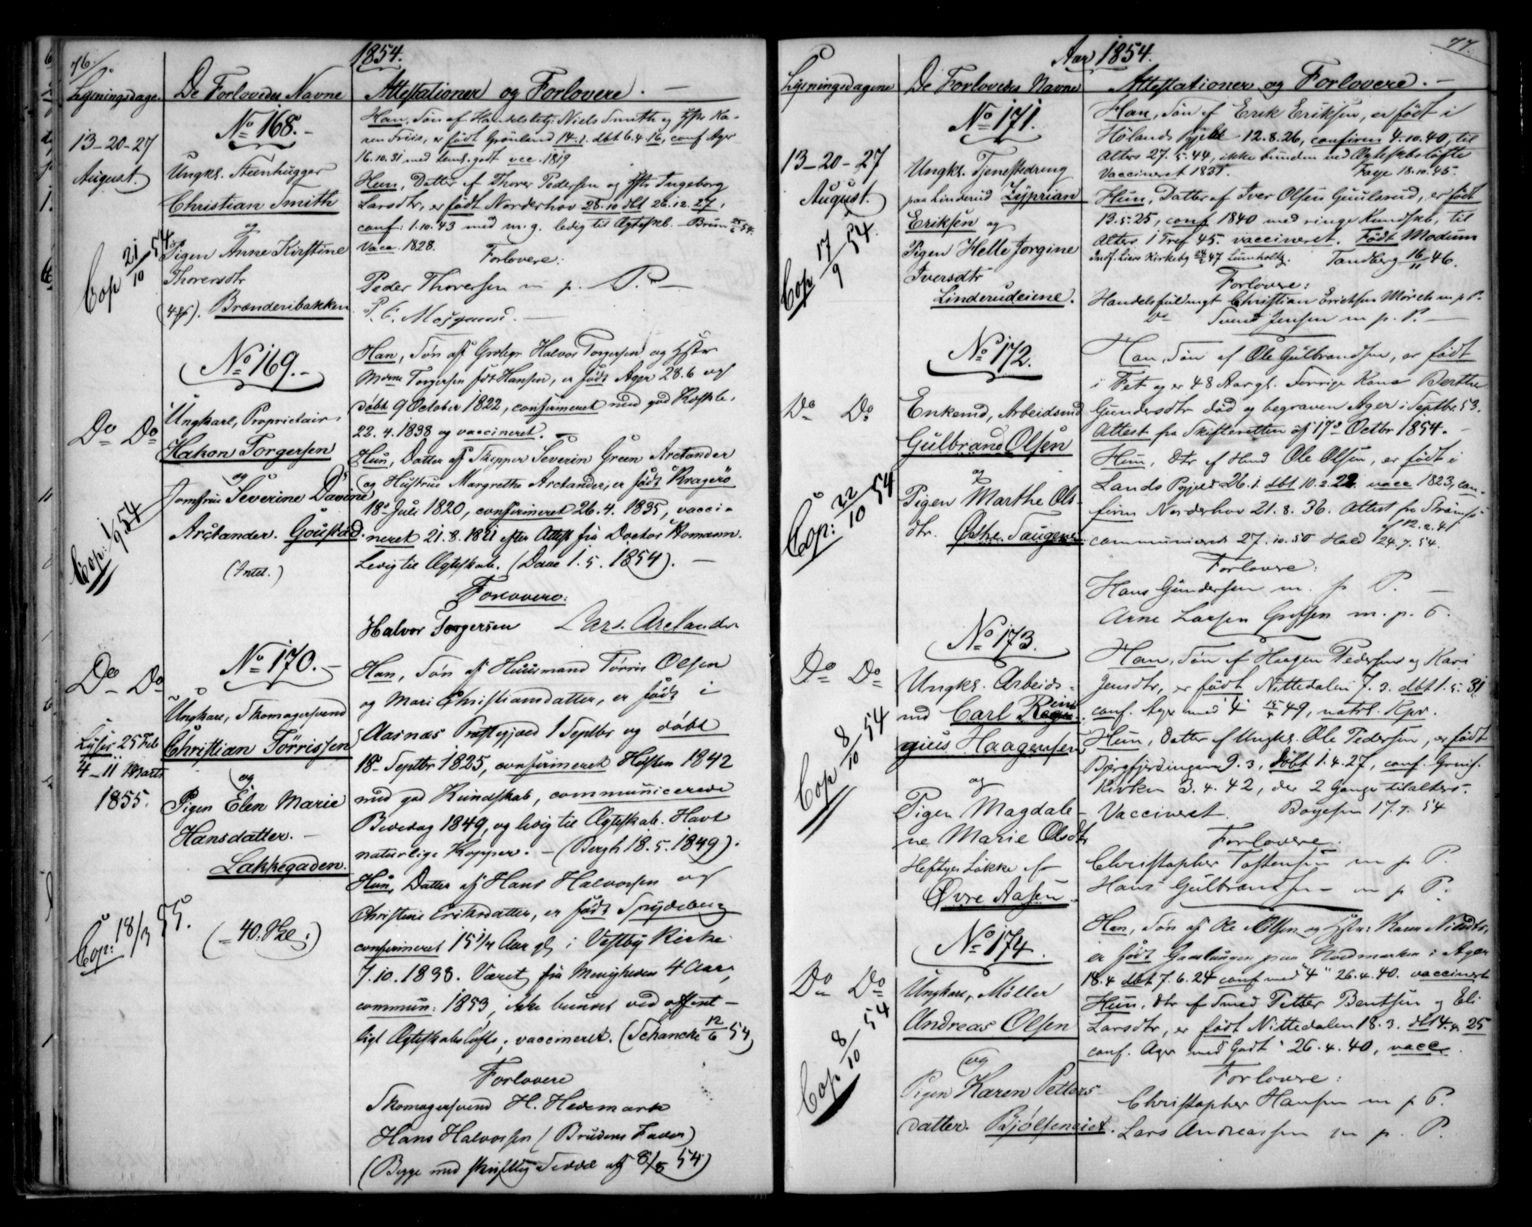 76.
1854.
Lysningsdage. De Forlovedes Navne Attestationer og Forlovere. —
13-20-27
August.
No 168. —
Ungk. Steenhugger
Christian Smith
og
Pigen Anne Kirstine
Thorersdtr
Brændenbakken
Cop 21/10 54
Han, Søn af Handelsbetj. Niels Smith og Hstr Ka-
ren Friis, er født Grønland 14.1. dbt 6.4.16, conf. Ager
16.10.31 med godt vac. 1819
Hun, Datter af Thorer Pedersen og Hstr Ingeborg
Larsdtr, er født Norderhov 28.10. dbt 26.12.27,
conf. 1.10.43 med m. g. ledig til Ægteskab.
Vacc. 1828.
Forlovere:
Peder Thoresen m. p. P. —
No 169. —
Do Do
Ungkarl, Proprietair
Hakon Torgersen
og
Jomfrue Severine Davine
Arctander. Goustad.
(Intel.)
Cop: 1/9 54
Han, Søn af Halvor Torgersen og Hstr
Torgersen født Hansen, er født Ager 28.6 og
døbt 9 October 1822, confirmeret med god Kdskb.
22.4.1838 og vaccineret. —
Hun, Datter af Skipper Severin Green Arctander
og Hustrue Margrethe Arctander, er født Kragerø
18de Juli 1820, confirmeret 26.4.1835, vacci-
neret 21.8.1821 efter Attest fra Doctor Homann.
Ledig til Ægteskab. (Daae 1.5.1854). —
Forlovere:
Halvor Torgersen Lars Arctander
No 170. —
Do Do
Lyser 25 Feb
4-11 Marts
1855.
Ungkarl, Skomagersvend
Christian Tørrissen
og
Pigen Elen Marie
Hansdatter. —
Lakkegaden.
Cop: 18/3 55.
Han, Søn af Huusmand Tørris Olsen
og Mari Christiansdatter, er født i
Aasnæs Præstegjæld 1 Septbr og døbt
18de Septbr 1825, confirmeret Høsten 1842
med god Kundskab, communicerede
Bededag 1849, og ledig til Ægteskab. Havt
naturlige Kopper. — (Bergh 18.5.1849).
Hun, Datter af Hans Halvorsen og
Christine Eriksdatter, er født Spydeberg
confirmeret 15 1/4 Aar gl. i Vestby Kirke
7.10.1838. Været fra Menigheden 4 Aar,
commun. 1853, ikke bundet ved offent-
ligt Ægteskabsløfte, vaccineret. (Schancke 12/6 54)
Forlovere
Skomagersvend H. Hedemark
Hans Halvorsen (Brudens Fader)
(Begge med skriftlig Seddel af 8/8 54)
77.
Aar 1854.
Lysningsdagene De Forlovedes Navne Attestationer og Forlovere. —
13-20-27
August.
No 171.
Ungk. Tjenestedreng
paa Linderud Zyprian
Eriksen og
Pigen Helle Jorgine
Iversdtr
Linderudeiene.
Cop 17/9 54.
Han, Søn af Erik Eriksen, er født i
Hølands Pgjeld 12.8.26, confirm. 4.10.40, til
Alters 27.5.44, ikke bunden ved Ægteskbsløfte
Vaccineret 1837.
Hun, Datter af Iver Olsen Guulsrud, er født
13.5.25, conf. 1840 med ringe Kundskab, til
Alters 45. vaccineret. Født Modum
Tandberg 16/11 46.
Forlovere:
Handelsfuldmægt Christian Erichsen Mørch m. p. P.
Do Svend Jensen m. p. P. —
No 172.
Do Do
Enkemd, Arbeidsmd
Gulbrand Olsen
og
Pigen Marthe Ols-
dtr. Østre Saugene
Cop: 22/10 54
Han, Søn af Ole Gulbrandsen, er født
i Fet og er 48 Aar gl. Forrige Kone Berthe
Gundersdtr død og begraven Ager i Septbr 53.
Attest fra Skifteretten af 17de Octbr 1854. —
Hun, dtr. af Hmd Ole Olsen, er født i
Lands Pgjeld 26.1. dbt 10.2.22 vacc 1823, con-
firm Norderhov 21.8.36. Attest fra
communiceret 27.10.50 24.7.54.
Forlovere:
Hans Gundersen m. p. P. —
Arne Larsen m. p. P.
No 173.
Do Do
Ungk. Arbeids-
md Carl
Haagensen
og
Pigen Magdale-
ne Marie Olsdtr
Heftyes Løkke
Øvre Aasen.
Cop 8/10 54
Han, Søn af Haagen Pedersen og Kari
Jensdtr, er født Nittedalen 7.3. dbt 1.5.31
conf. Ager med 49, natrl. Kpr.
Hun, datter af Ungk. Ole Pedersen, er født
9.3, døbt 1.4.27, conf.
Kirken 3.4.42, der 2 Gange tilalters.
Vaccineret. Bøgesen 17.7.54
Forlovere:
Christopher Tostensen m. p. P.
Hans Gulbrandsen m. p. P.
No 174.
Do Do
Ungkarl, Møller
Andreas Olsen
og
Pigen Karen Petters
datter. Bjølseneiet.
Cop. 8/10 54
Han, Søn af Ole Olsen og Hstr: Karen
er født paa Nordmarken i Ager
18.4 dbt 7.6.24 conf med 4" 26.4.40. vaccineret
Hun, dtr af Smed Petter Bentsen og Eli
Larsdtr, er født Nittedalen 18.3. dbt 4.4.25
conf. Ager med Godt 26.4.40, vacc.
Forlovere:
Christopher Hansen m. p. P.
Lars Andreassen m. p. P.